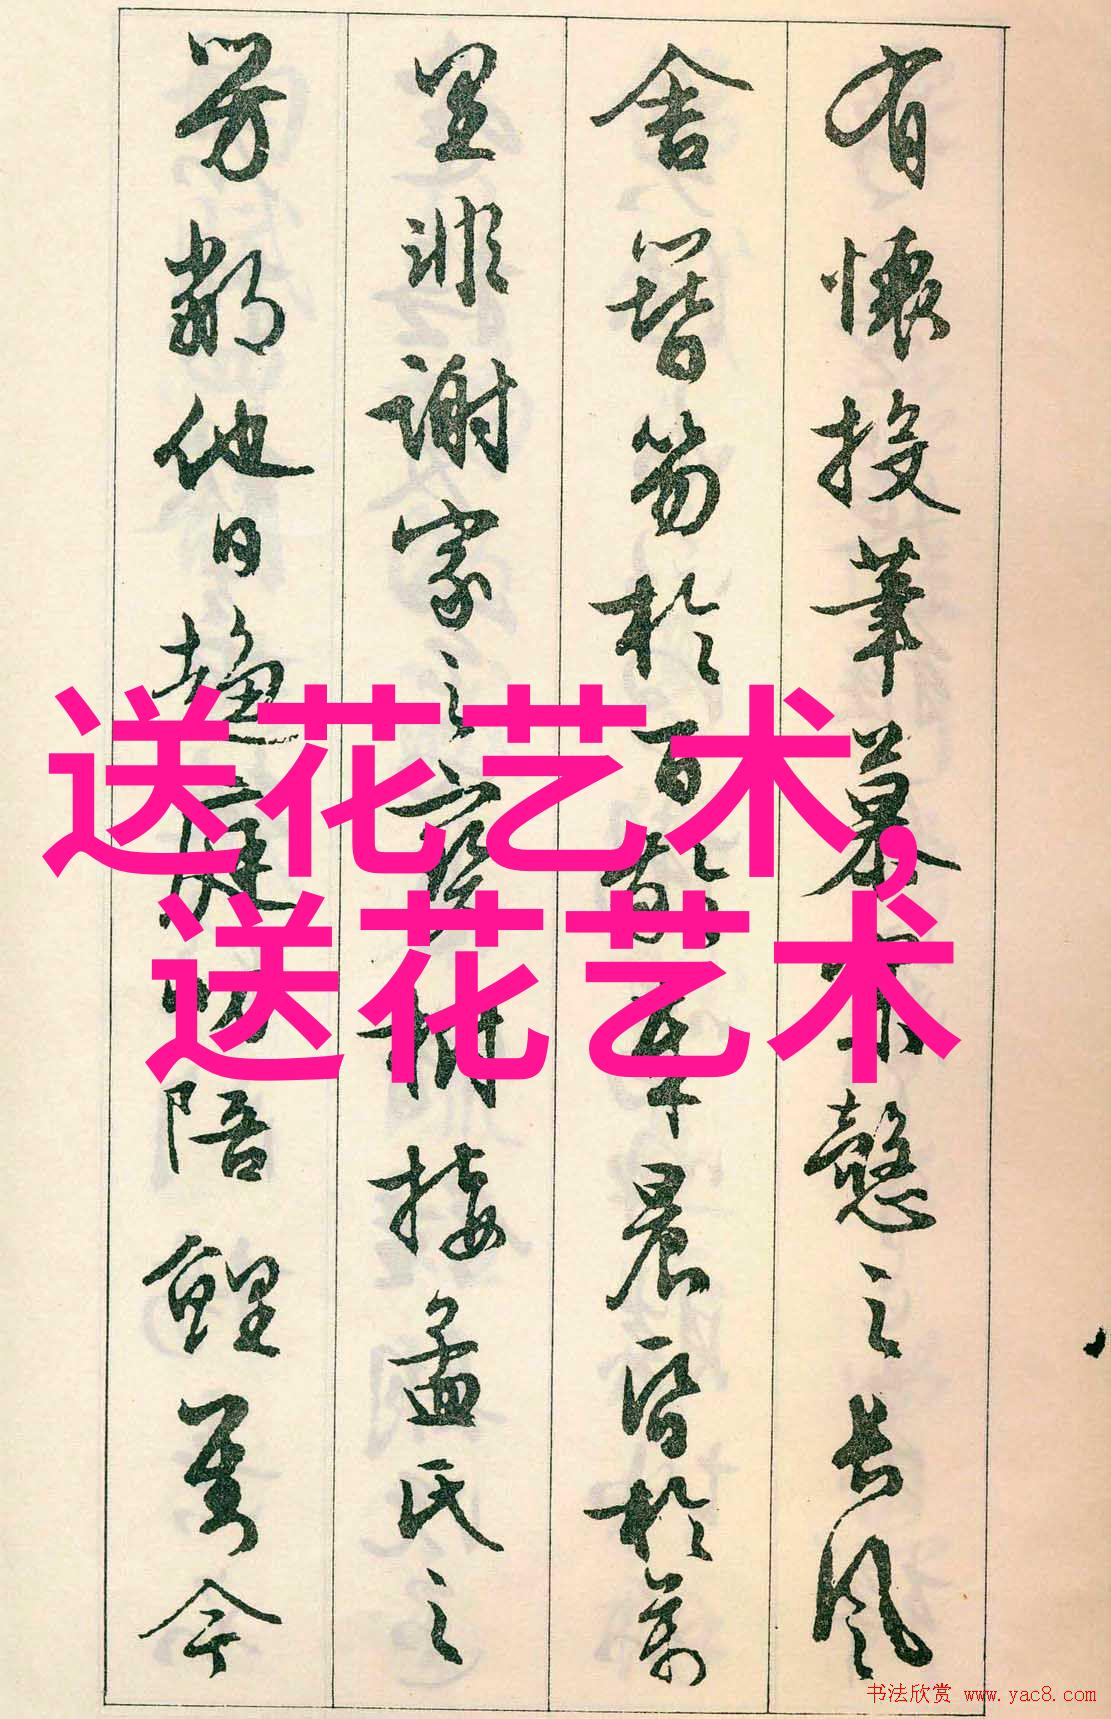 有懷投筆慕宗愨之長風
舍簪笏於百齡奉晨昏於萬
里非謝家之寶樹接孟氏之
芳鄰他日趨庭叨陪鯉對今
送花艺术,
送花艺术
书法欣赏 www.yac8.com